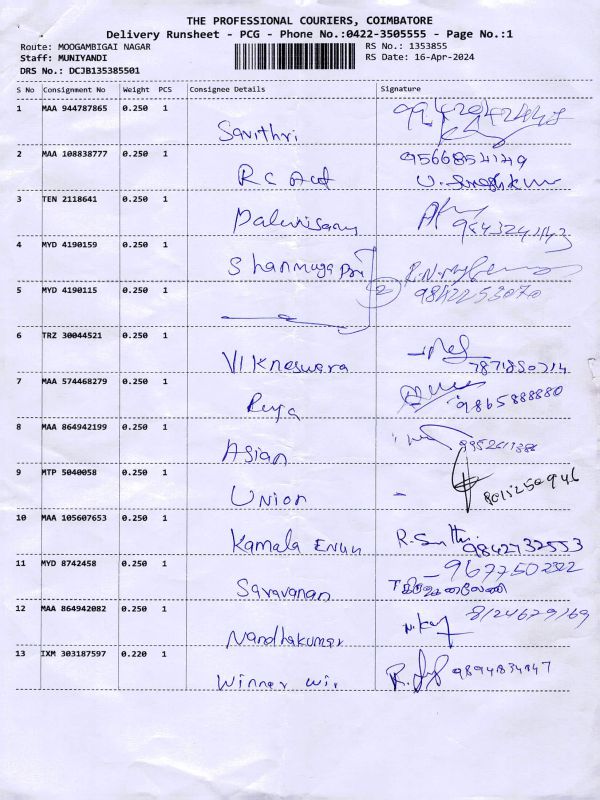 THE PROFESSIONAL COURIERS, COIMBATORE
Delivery Runsheet - PCG - Phone No.:0422-3505555 - Page No.:1
Route: MOOGAMBIGAI NAGAR RS No.: 1353855
Staff: MUNIYANDI RS Date: 16-Apr-2024
DRS No.: DCJB135385501
S No Consignment No Weight PCS Consignee Details Signature
1 MAA 944787865 0.250 1
Savithri
2 MAA 108838777 0.250 1 9566854149
RC
3 TEN 2118641 0.250 1
Palanisamy 9843241143
4 MYD 4190159 0.250 1
Shanmuga
5 MYD 4190115 0.250 1 2 9842253070
6 TRZ 30044521 0.250 1
Vikneswara 7871850714
7 MAA 574468279 0.250 1
9865888880
8 MAA 864942199 0.250 1
Asian
9 MTP 5040058 0.250 1
Union
10 MAA 105607653 0.250 1
Kamala 9842732553
11 MYD 8742458 0.250 1
Saravanan
12 MAA 864942082 0.250 1 8124679169
Nandhakumar
13 IXM 303187597 0.220 1
Winner